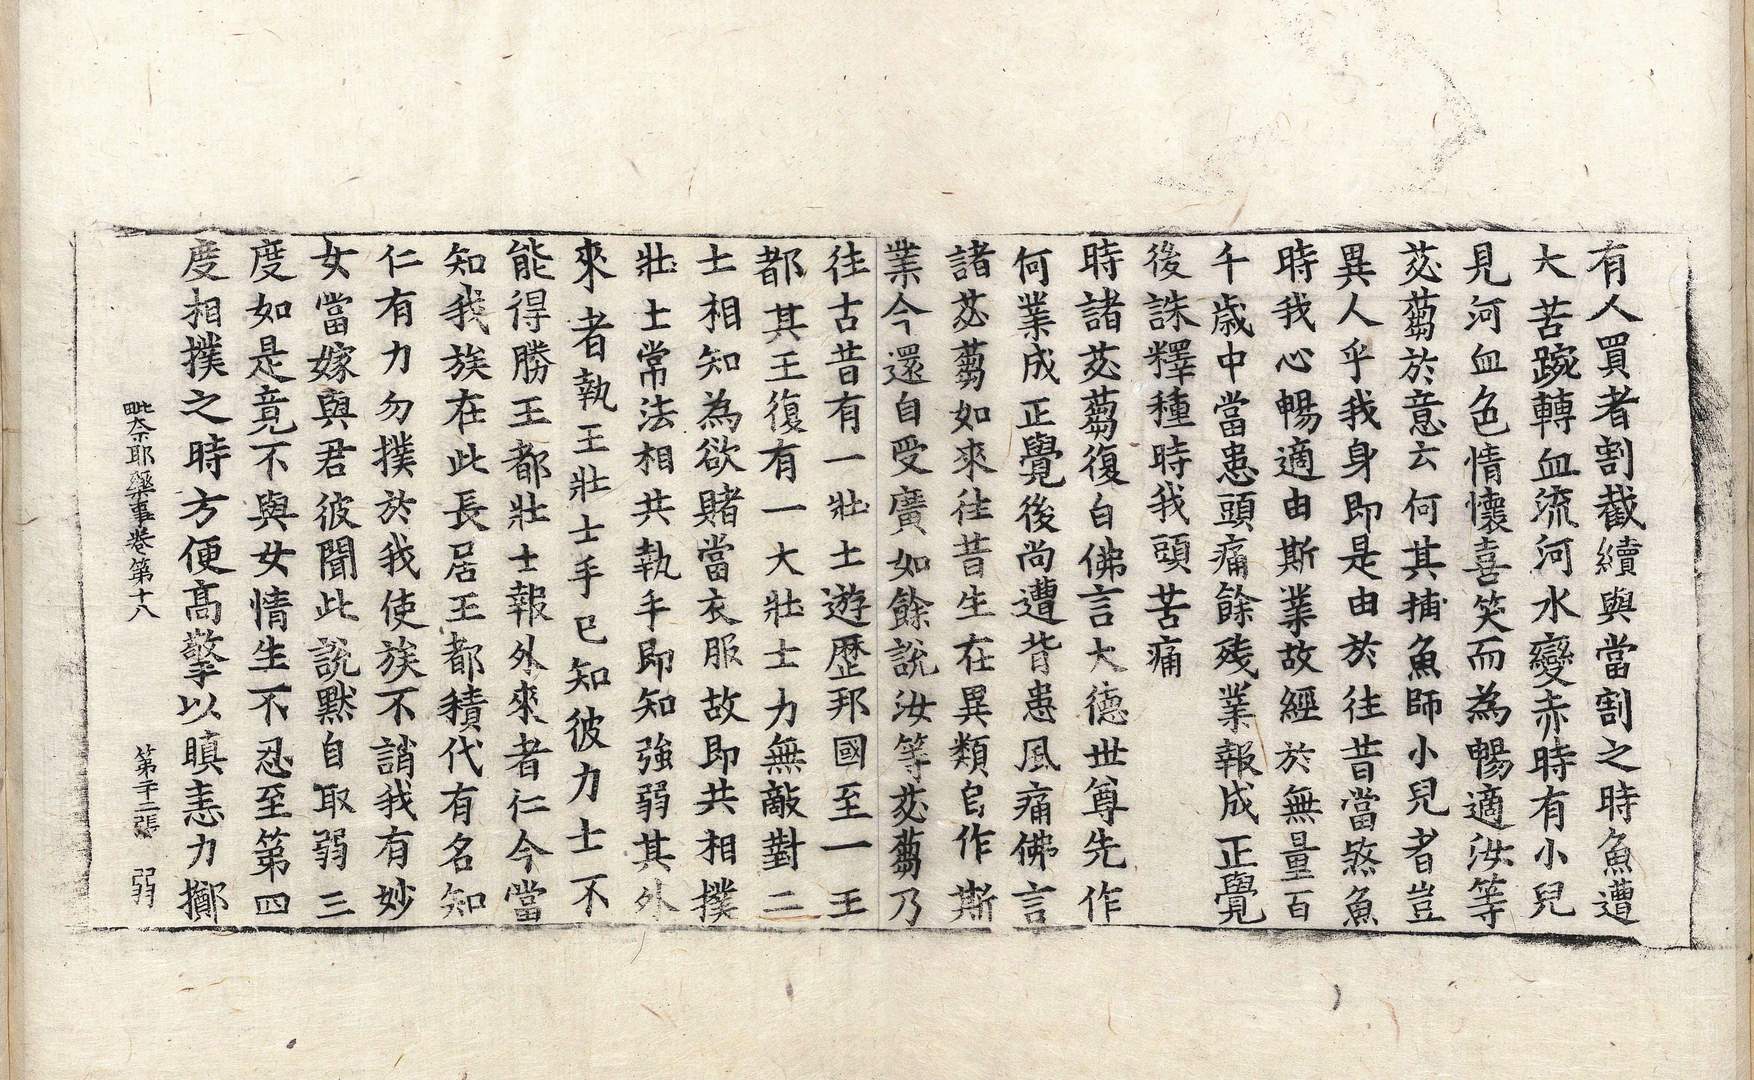 有人買者割截續與當割之時魚遭
大苦踠轉血流河水變赤時有小兒
見河血色情懷喜笑而為暢適汝等
苾蒭於意云何其捕魚師小兒者豈
異人乎我身即是由於往昔當煞魚
時我心暢適由斯業故經於無量百
千歲中當患頭痛餘残業報成正覺
後誅釋種時我頭苦痛
時諸苾蒭復白佛言大德世尊先作
何業成正覺後尚遭背患風痛佛言
諸苾蒭如來往昔生在異類自作斯
業今還自受廣如餘說汝等苾蒭乃
往古昔有一壯士遊歷邦國至一王
都其王復有一大壯士力無敵對二
士相知為欲賭當衣服故即共相撲
壯士常法相共執手即知強弱其外
來者執王壯士手已知彼力士不
能得勝王都壯士報外來者仁今當
知我族在此長居王都積代有名知
仁有力勿撲於我使族不誚我有妙
女當嫁與君彼聞此說默自取弱三
度如是竟不與女情生不忍至第四
度相撲之時方便高擎以瞋恚力擲
毗奈耶藥事卷第十八 第十二張 弱